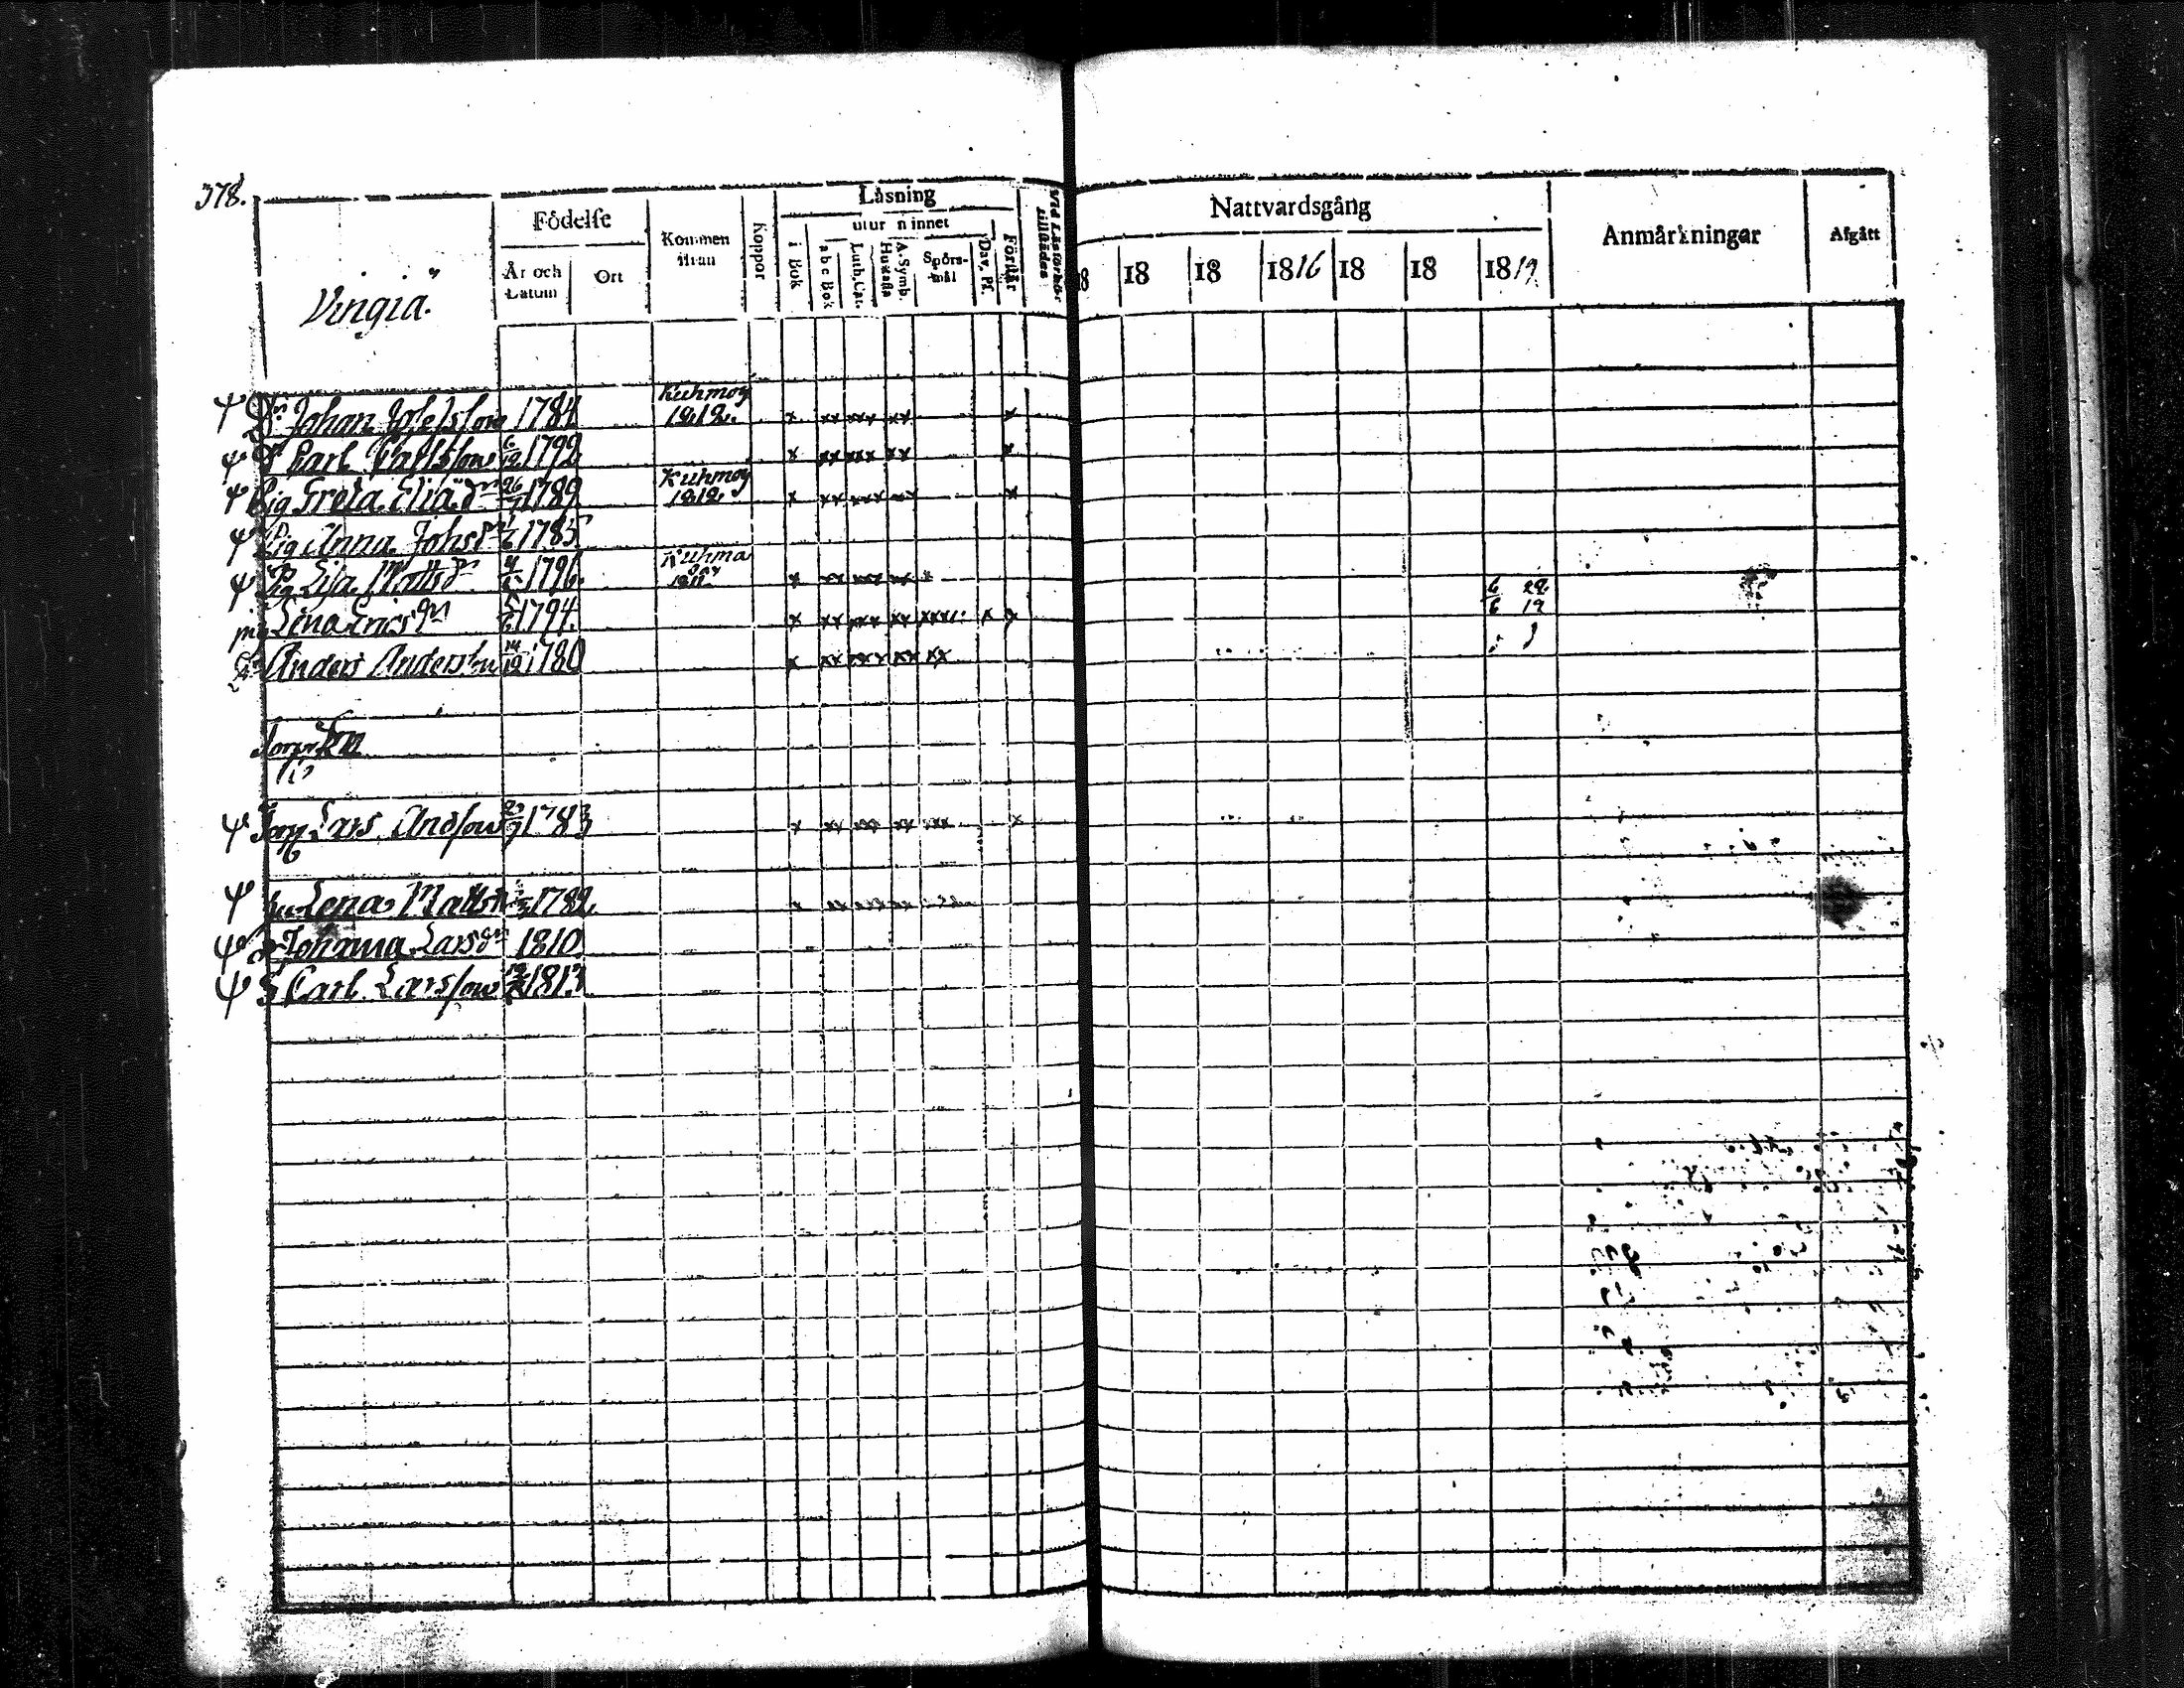 378.
Födelse
Läsning
Nattvardsgång
Anmärkningar
Afgått
utur minnet
Kommen ifrån
Koppor
År och Datum
Ort
i Bok
a b c Bok
Luth. Cat.
A. Symb. Hustafla
Spörs-mål
Dav. Ps.
Förstår
Vid Läsförhör tillstädes
8 18 18 1816 18 18 1819
Vingiä
Kuhmoy
Johan 1784 1812. x xx xxx xx x
Carl 6/12 1792 x xx xxx xx x
Kuhmoy
Pig Greta Eliæ dr 26/7 1789 1812 x xx xxx xx x
Pig Anna Johs dr 1785
Pig Lisa Matts dr 1796 1811 x xx xxx xx x
6 22
pig Lena Erics dr 1794 x xx xxx xx xxx x x 6 19
Anders Andersson 14/12 1780 x xx xxx xx xx
Lars Andsson 1783 x xx xxx xx xx x
Lena Matts dr 1782 x xx xxx xx
Johanna Lars dr 1810
S Carl Larsson 1813